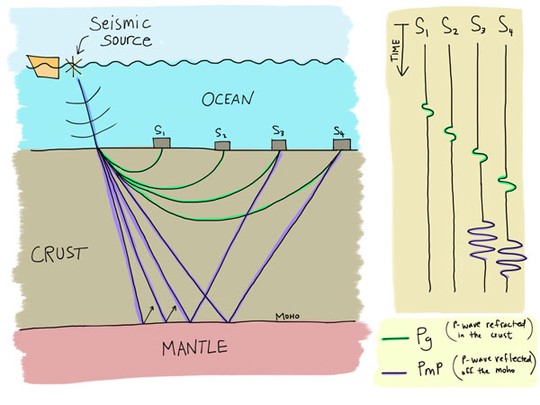 Seismic
source
OCEAN
S1
S2
S3
S4
CRUST
MOHO
MANTLE
TIME
S1
S2
S3
S4
Pg (P-wave refracted
in the crust)
PmP (P-wave reflected
off the moho)